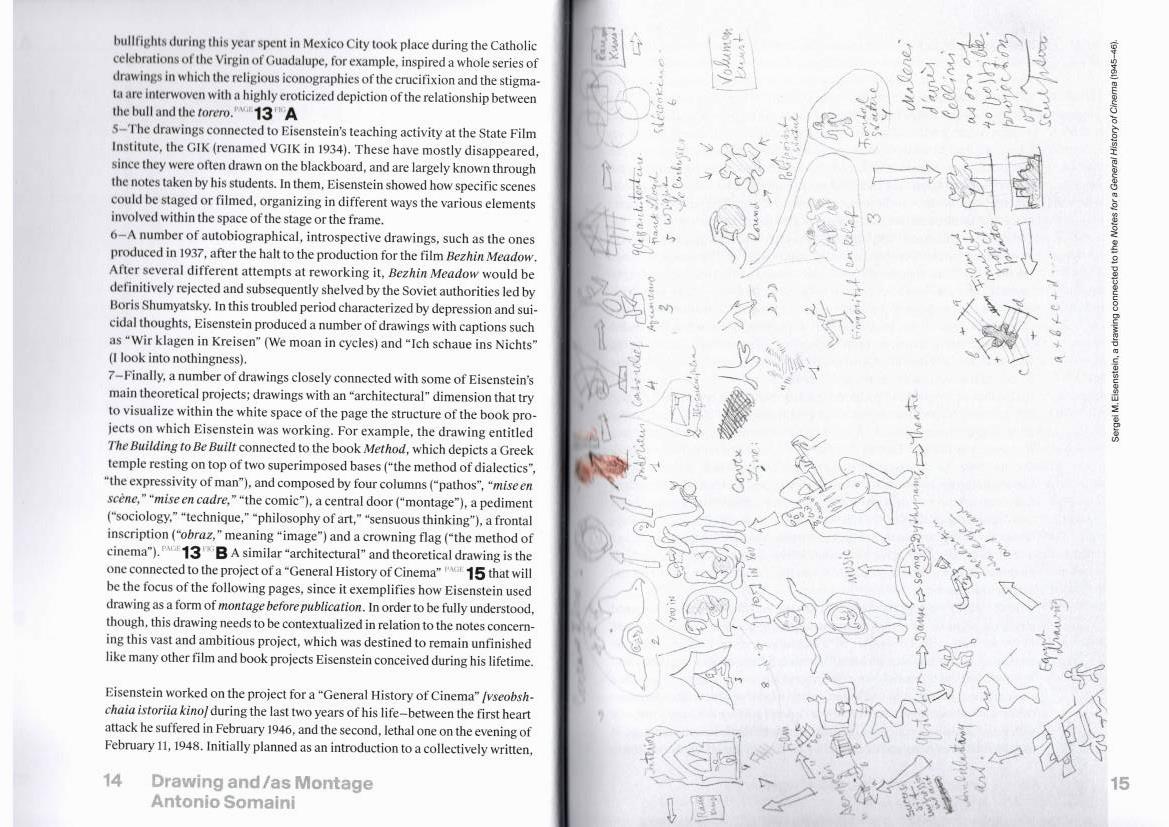 bullfights during this year spent in Mexico City took place during the Catholic
celebrations of the Virgin of Guadalupe, for example, inspired a whole series of
drawings in which the religious iconographies of the crucifixion and the stigma-
ta are interwoven with a highly eroticized depiction of the relationship between
the bull and the torero. PAGE 13 FIG A
5–The drawings connected to Eisenstein's teaching activity at the State Film
Institute, the GIK (renamed VGIK in 1934). These have mostly disappeared,
since they were often drawn on the blackboard, and are largely known through
the notes taken by his students. In them, Eisenstein showed how specific scenes
could be staged or filmed, organizing in different ways the various elements
involved within the space of the stage or the frame.
6–A number of autobiographical, introspective drawings, such as the ones
produced in 1937, after the halt to the production for the film Bezhin Meadow.
After several different attempts at reworking it, Bezhin Meadow would be
definitively rejected and subsequently shelved by the Soviet authorities led by
Boris Shumyatsky. In this troubled period characterized by depression and sui-
cidal thoughts, Eisenstein produced a number of drawings with captions such
as "Wir klagen in Kreisen" (We moan in cycles) and "Ich schaue ins Nichts"
(I look into nothingness).
7–Finally, a number of drawings closely connected with some of Eisenstein's
main theoretical projects; drawings with an "architectural" dimension that try
to visualize within the white space of the page the structure of the book pro-
jects on which Eisenstein was working. For example, the drawing entitled
The Building to Be Built connected to the book Method, which depicts a Greek
temple resting on top of two superimposed bases ("the method of dialectics",
"the expressivity of man"), and composed by four columns ("pathos", "mise en
scène," "mise en cadre," "the comic"), a central door ("montage"), a pediment
("sociology," "technique," "philosophy of art," "sensuous thinking"), a frontal
inscription ("obraz," meaning "image") and a crowning flag ("the method of
cinema"). PAGE 13 FIG B A similar "architectural" and theoretical drawing is the
one connected to the project of a "General History of Cinema" PAGE 15 that will
be the focus of the following pages, since it exemplifies how Eisenstein used
drawing as a form of montage before publication. In order to be fully understood,
though, this drawing needs to be contextualized in relation to the notes concern-
ing this vast and ambitious project, which was destined to remain unfinished
like many other film and book projects Eisenstein conceived during his lifetime.
Eisenstein worked on the project for a "General History of Cinema" [vseobsh-
chaia istoriia kino] during the last two years of his life–between the first heart
attack he suffered in February 1946, and the second, lethal one on the evening of
February 11, 1948. Initially planned as an introduction to a collectively written,
14 Drawing and/as Montage
Antonio Somaini
Raum
Kunst
Volumen
Kunst
5 Wright
Le Corbusier
6
Round
en Relief
3
4
1
2
Convex
Line:
YOU IN
IN YOU
MUSIC
Dance
song
Dythyramb
Theatre
Egypt
drawing
Film
a + b + c + d ...
Sergei M. Eisenstein, a drawing connected to the Notes for a General History of Cinema (1945–46).
15